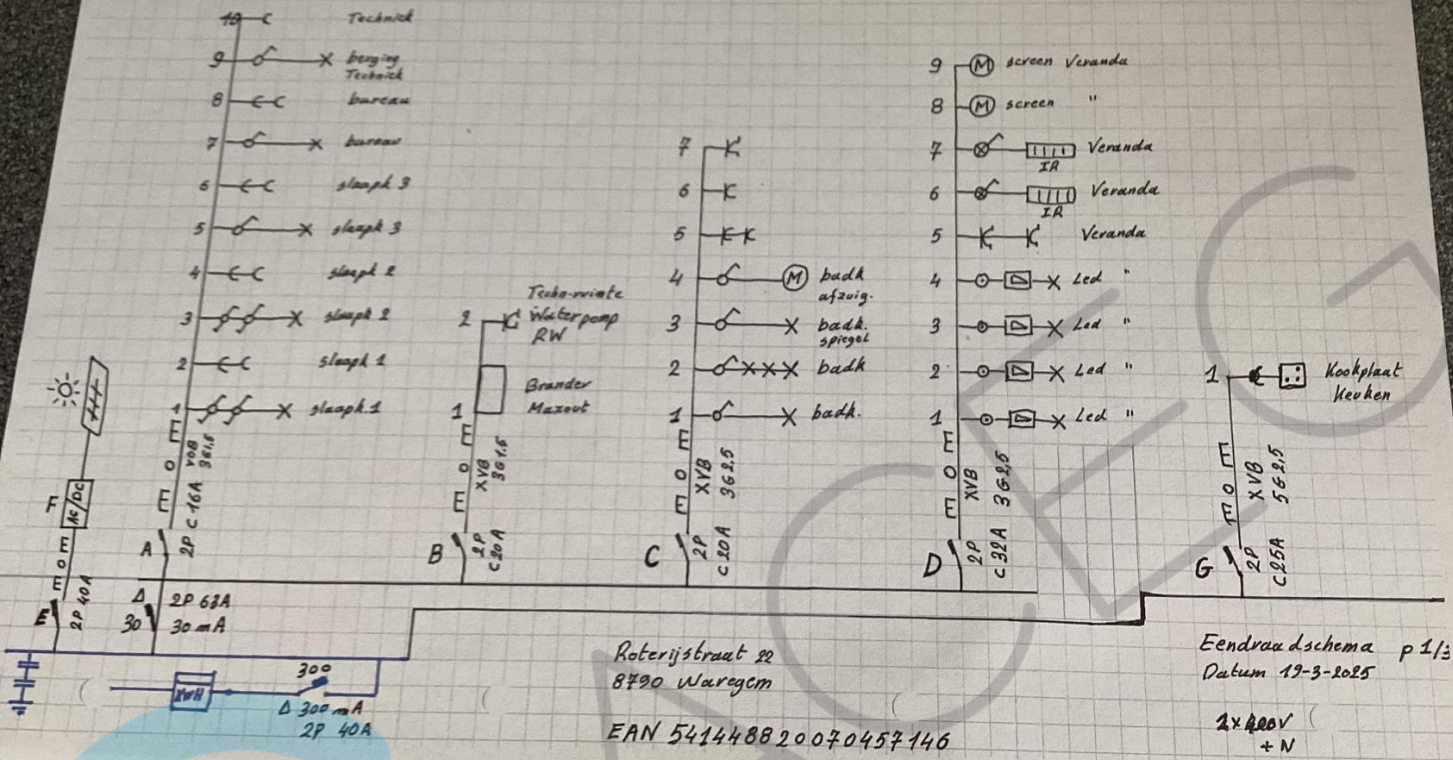 10 Technick
9 berging
Technick
8 bureau
7 bureau
6 slaapk 3
5 slaapk 3
4 slaapk 2
3 slaapk 2
2 slaapk 1
1 slaapk 1
VOB
3G1,5
2P C16A
A
F
AC/DC
E
2P 40A
Δ 2P 63A
30 30 mA
2 Waterpomp
RW
1 Brander
Mazout
XVB
3G1,5
B
2P
C20A
7
6
5
4 M badk
afzuig.
3 badk.
spiegel
2 badk
1 badk.
XVB
3G2,5
C
2P
C20A
9 M screen Veranda
8 M screen "
7 Veranda
IR
6 Veranda
IR
5 Veranda
4 Led "
3 Led "
2 Led "
1 Led "
XVB
3G2,5
D
2P
C32A
1 Kookplaat
Keuken
XVB
5G2,5
G
2P
C25A
KWH
300
Δ 300 mA
2P 40A
Roterijstraat 22
8790 Waregem
EAN 541448820070457146
Eendraadschema p 1/3
Datum 19-3-2025
2x400V
+ N